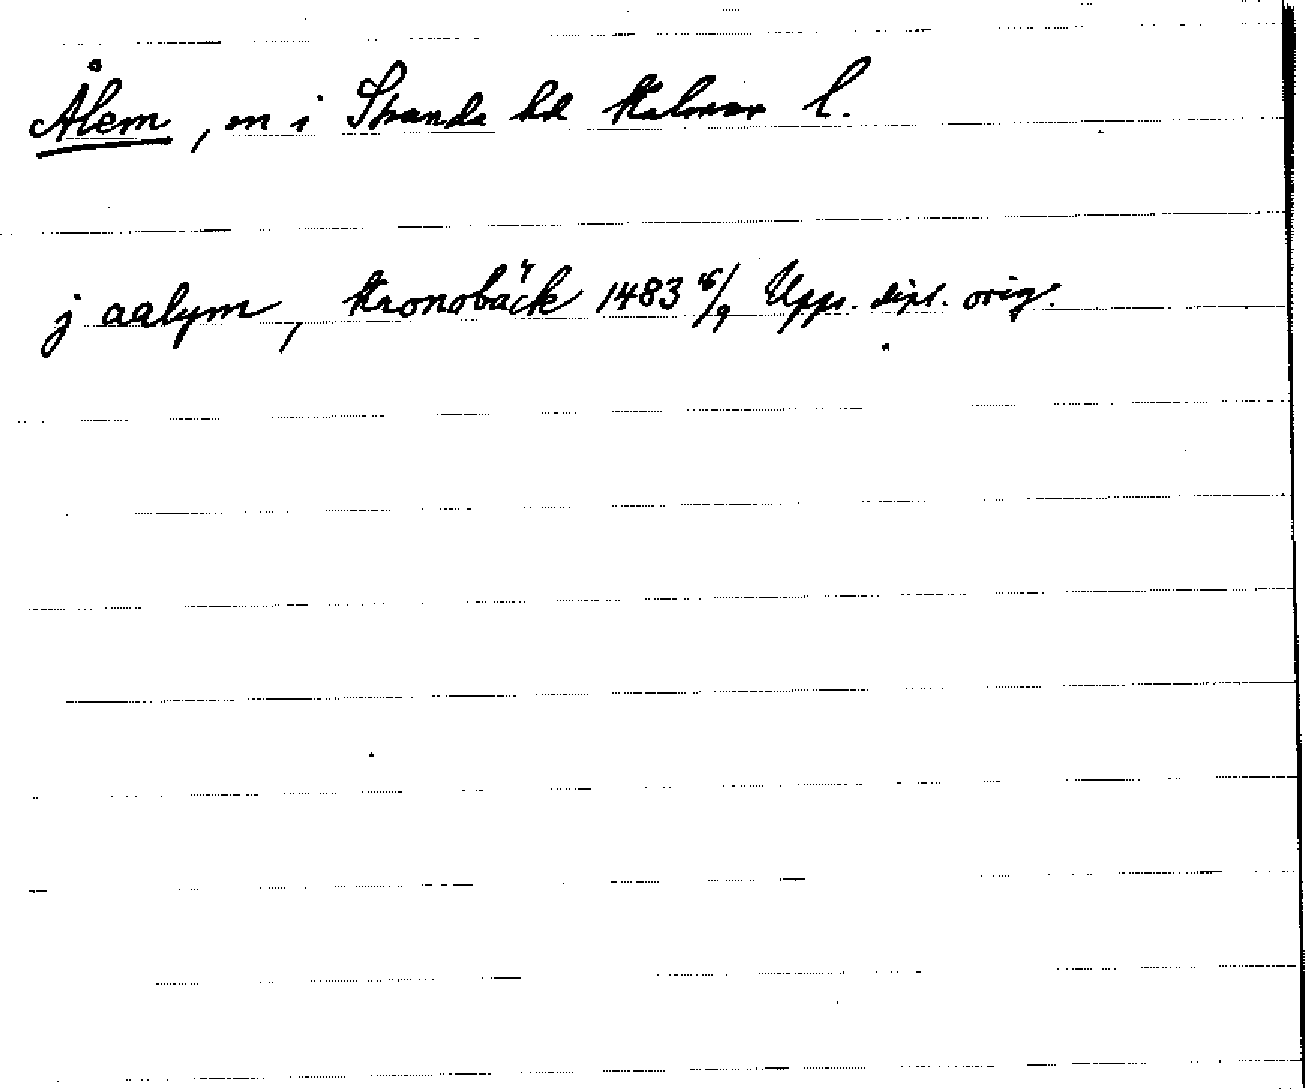 Ålem, sn i Stranda hd Kalmar l.
j aalym, Kronobäck 1483 16/9 Upps. dipl. orig.